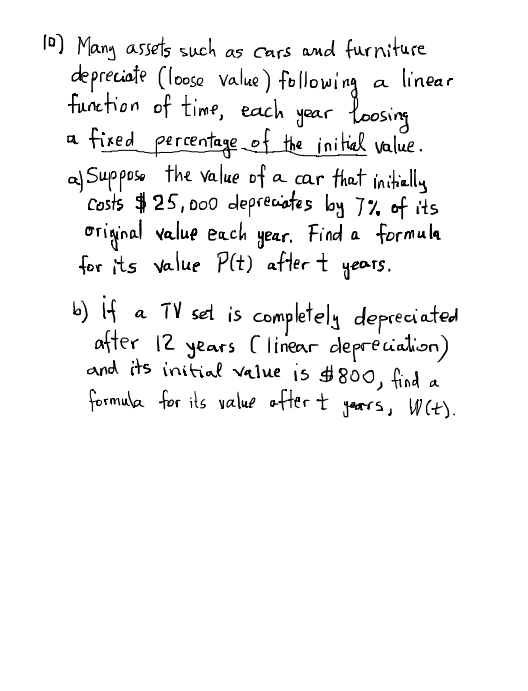 10) Many assets such as cars and furniture
depreciate (loose value) following a linear
function of time, each year loosing
a fixed percentage of the initial value.
a) Suppose the value of a car that initially
costs $25,000 depreciates by 7% of its
original value each year. Find a formula
for its value P(t) after t years.
b) if a TV set is completely depreciated
after 12 years (linear depreciation)
and its initial value is $800, find a
formula for its value after t years, W(t).